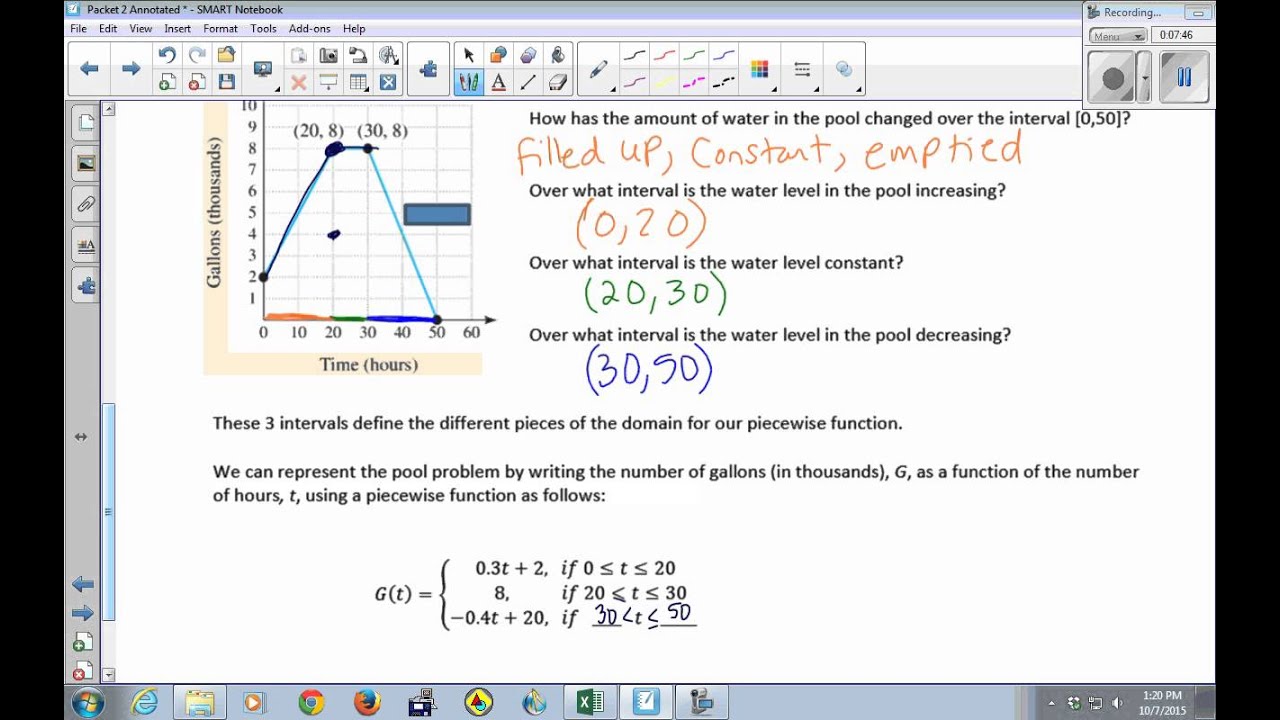 Packet 2 Annotated * - SMART Notebook
Recording...
File Edit View Insert Format Tools Add-ons Help
Menu
0:07:46
Gallons (thousands)
10
9
8
7
6
5
4
3
2
1
(20, 8) (30, 8)
0 10 20 30 40 50 60
Time (hours)
How has the amount of water in the pool changed over the interval [0,50]?
filled up, constant, emptied
Over what interval is the water level in the pool increasing?
(0,20)
Over what interval is the water level constant?
(20,30)
Over what interval is the water level in the pool decreasing?
(30,50)
These 3 intervals define the different pieces of the domain for our piecewise function.
We can represent the pool problem by writing the number of gallons (in thousands), G, as a function of the number
of hours, t, using a piecewise function as follows:
0.3t + 2, if 0 ≤ t ≤ 20
G(t) = { 8, if 20 < t ≤ 30
−0.4t + 20, if 30 < t ≤ 50
1:20 PM
10/7/2015